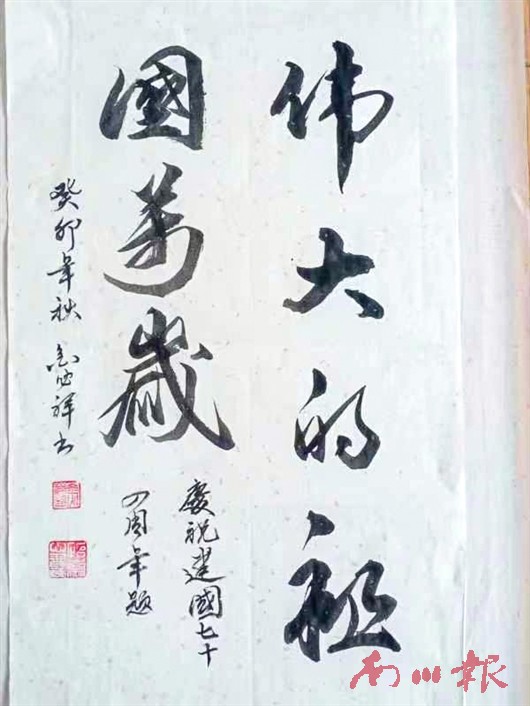 伟大的祖
國萬歲
慶祝建國七十
四周年題
癸卯年秋
祥书
南川報